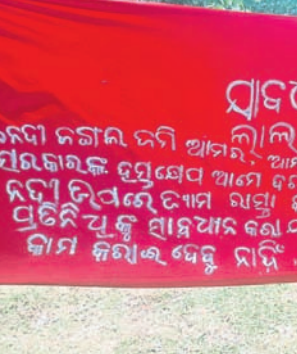 ଯାବତ
ନେଦୀ ଜଙ୍ଗଲ ଜମି ଆମର୍ ଲାଲ
ସରକାରଙ୍କ ହସ୍ତକ୍ଷେପ ଆମେ
ନଦୀ ଉପରେ ଡ୍ୟାମ ରାସ୍ତା
ପ୍ରତିନିଧିଙ୍କୁ ସାବଧାନ କରା
କାମ କରାଇ ଦେବୁ ନାହିଁ